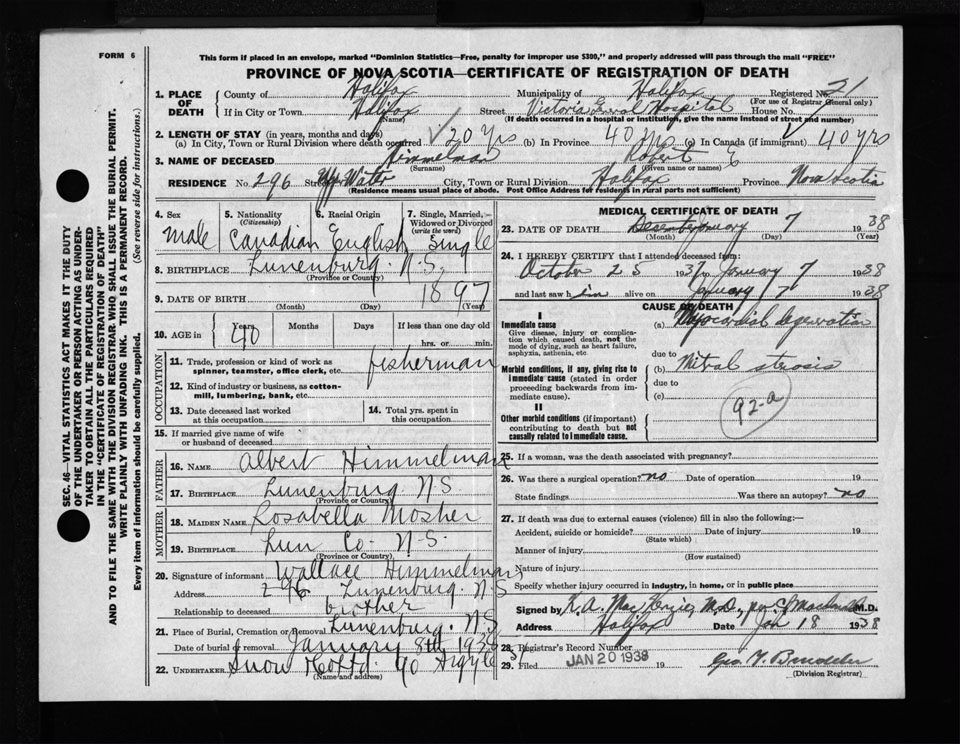 FORM 6
This form if placed in an envelope, marked "Dominion Statistics—Free, penalty for improper use $300," and properly addressed will pass through the mail "FREE"
PROVINCE OF NOVA SCOTIA—CERTIFICATE OF REGISTRATION OF DEATH
1. PLACE OF DEATH County of Halifax Municipality of Halifax Registered No. 21
(For use of Registrar General only)
If in City or Town Halifax Street Victoria General Hospital House No.
(Name) (If death occurred in a hospital or institution, give the name instead of street and number)
2. LENGTH OF STAY (in years, months and days)
(a) In City, Town or Rural Division where death occurred 20 yrs (b) In Province 40 yrs (c) In Canada (if immigrant) 40 yrs
3. NAME OF DECEASED Himmelman Robert E
(Surname) (Given name or names)
RESIDENCE No. 296 Street Upp. Water City, Town or Rural Division Halifax Province Nova Scotia
(Residence means usual place of abode. Post Office Address for residents in rural parts not sufficient)
SEC. 46—VITAL STATISTICS ACT MAKES IT THE DUTY
OF THE UNDERTAKER OR PERSON ACTING AS UNDER-
TAKER TO OBTAIN ALL THE PARTICULARS REQUIRED
IN THE "CERTIFICATE OF REGISTRATION OF DEATH"
AND TO FILE THE SAME WITH THE DIVISION REGISTRAR WHO SHALL ISSUE THE BURIAL PERMIT.
WRITE PLAINLY WITH UNFADING INK. THIS IS A PERMANENT RECORD.
Every item of information should be carefully supplied. (See reverse side for instructions.)
4. Sex 5. Nationality (Citizenship) 6. Racial Origin 7. Single, Married, Widowed or Divorced (write the word)
Male Canadian English Single
8. BIRTHPLACE Lunenburg. N.S.
(Province or Country)
9. DATE OF BIRTH 1897
(Month) (Day) (Year)
10. AGE in Years Months Days If less than one day old
40 hrs. or min.
OCCUPATION
11. Trade, profession or kind of work as spinner, teamster, office clerk, etc. fisherman
12. Kind of industry or business, as cotton-mill, lumbering, bank, etc.
13. Date deceased last worked at this occupation 14. Total yrs. spent in this occupation
15. If married give name of wife or husband of deceased
FATHER
16. NAME Albert Himmelman
17. BIRTHPLACE Lunenburg N S
(Province or Country)
MOTHER
18. MAIDEN NAME Rosabella Mosher
19. BIRTHPLACE Lun Co. N.S.
(Province or Country)
20. Signature of informant Wallace Himmelman
Address 296 Lunenburg. N.S
Relationship to deceased brother
21. Place of Burial, Cremation or Removal Lunenburg. N.S
Date of burial or removal January 8th 1938
22. UNDERTAKER Snow 90 Argyle St
(Name and address)
MEDICAL CERTIFICATE OF DEATH
23. DATE OF DEATH December January 7 1938
(Month) (Day) (Year)
24. I HEREBY CERTIFY that I attended deceased from:
October 25 1937 to January 7 1938
and last saw him alive on January 7 1938
CAUSE OF DEATH
I
Immediate cause (a) Myocardial degeneration
Give disease, injury or complication which caused death, not the mode of dying, such as heart failure, asphyxia, asthenia, etc.
due to
Morbid conditions, if any, giving rise to immediate cause (stated in order proceeding backwards from immediate cause).
(b) Mitral stenosis
due to
(c)
92-a
II
Other morbid conditions (if important) contributing to death but not causally related to immediate cause.
25. If a woman, was the death associated with pregnancy?
26. Was there a surgical operation? no Date of operation 19
State findings Was there an autopsy? no
27. If death was due to external causes (violence) fill in also the following:—
Accident, suicide or homicide? Date of injury 19
(State which)
Manner of injury
(How sustained)
Nature of injury
Specify whether injury occurred in industry, in home, or in public place
Signed by K. A. MacKenzie, M.D., per M.D.
Address Halifax Date Jan 18 1938
28. Registrar's Record Number
29. Filed JAN 20 1938 19
(Division Registrar)